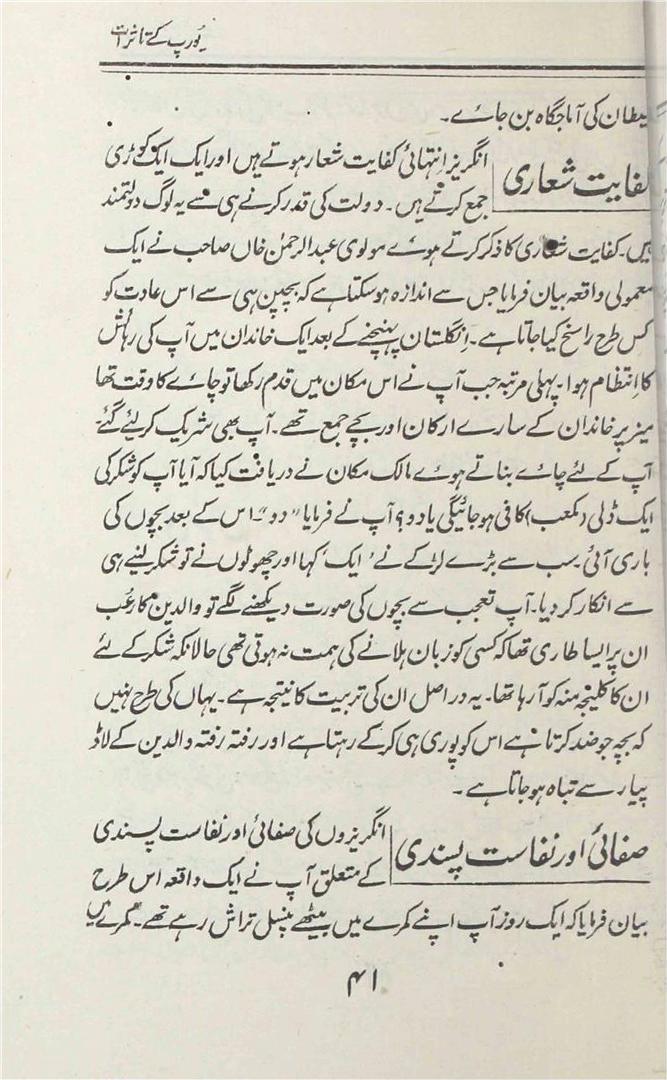 یُورپ کے تاثرات
شیطان کی آماجگاہ بن جائے۔
کفایت شعاری
انگریز اِنتہائی کفایت شعار ہوتے ہیں اور ایک ایک کوڑی
جمع کرتے ہیں۔ دولت کی قدر کرنے ہی سے یہ لوگ دولتمند
ہیں۔ کفایت شعاری کا ذکر کرتے ہوئے مولوی عبدالرحمٰن خاں صاحب نے ایک
معمولی واقعہ بیان فرمایا جس سے اندازہ ہوسکتا ہے کہ بچپن ہی سے اس عادت کو
کس طرح راسخ کیا جاتا ہے۔ اِنگلستان پہنچنے کے بعد ایک خاندان میں آپ کی رہائش
کا اِنتظام ہوا۔ پہلی مرتبہ جب آپ نے اس مکان میں قدم رکھا تو چائے کا وقت تھا
میز پر خاندان کے سارے ارکان اور بچے جمع تھے۔ آپ بھی شریک کرلئے گئے۔
آپ کے لئے چائے بناتے ہوئے مالک مکان نے دریافت کیا کہ آیا آپ کو شکر کی
ایک ڈلی (مکعب) کافی ہوجائیگی یا دو؟ آپ نے فرمایا "دو"۔ اس کے بعد بچوں کی
باری آئی۔ سب سے بڑے لڑکے نے ' ایک ' کہا اور چھوٹوں نے تو شکر لینے ہی
سے انکار کردیا۔ آپ تعجب سے بچوں کی صورت دیکھنے لگے تو والدین کا رعب
ان پر ایسا طاری تھا کہ کسی کو زبان ہلانے کی ہمت نہ ہوتی تھی حالانکہ شکر کے لئے
ان کا کلیجہ منہ کو آرہا تھا۔ یہ دراصل ان کی تربیت کا نتیجہ ہے۔ یہاں کی طرح نہیں
کہ بچہ جو ضد کرتا ہے اس کو پوری ہی کرکے رہتا ہے اور رفتہ رفتہ والدین کے لاڈ
پیار سے تباہ ہوجاتا ہے۔
صفائی اور نفاست پسندی
انگریزوں کی صفائی اور نفاست پسندی
کے متعلق آپ نے ایک واقعہ اس طرح
بیان فرمایا کہ ایک روز آپ اپنے کمرے میں بیٹھے پنسل تراش رہے تھے۔ کمرے میں
۴۱